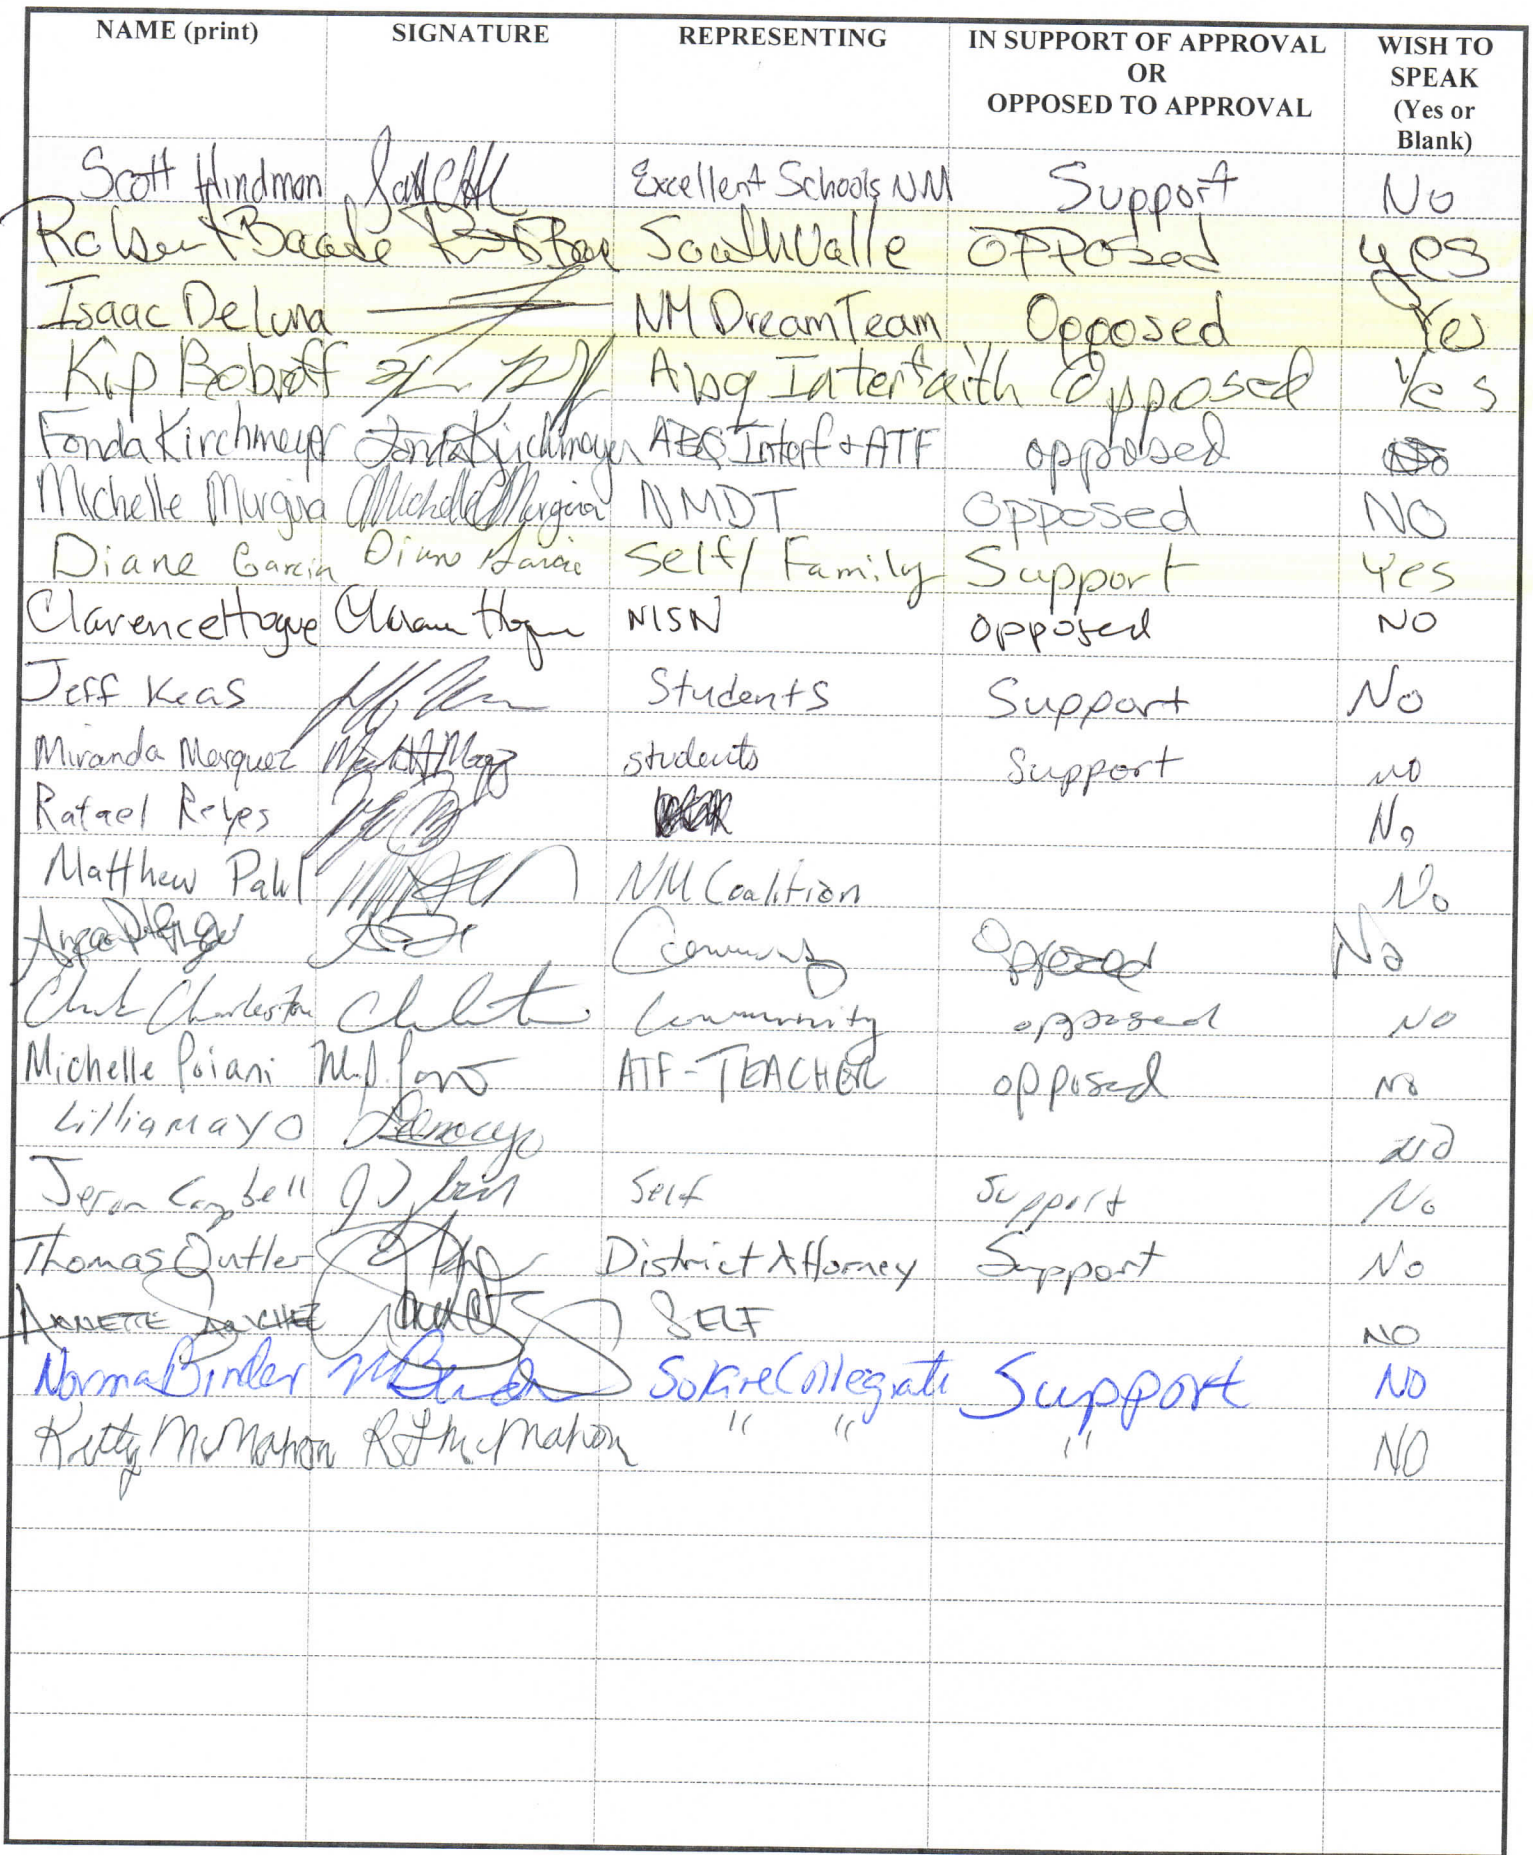 NAME (print) SIGNATURE REPRESENTING IN SUPPORT OF APPROVAL OR OPPOSED TO APPROVAL WISH TO SPEAK (Yes or Blank)
Scott Hindman Excellent Schools NM Support No
Robert Baade South Valle opposed yes
Isaac De Luna NM Dream Team Opposed Yes
Kip Bobroff Abq Interfaith Opposed Yes
Fonda Kirchmeyer Fonda Kirchmeyer ABQ Interf + ATF opposed
Michelle Murguia Michelle Murguia NMDT opposed NO
Diane Garcia Diane Garcia Self/Family Support Yes
Clarence Hogue Clarence Hogue NISN opposed NO
Jeff Keas Students Support No
Miranda Marquez students Support no
Rafael Reyes No
Matthew Pahl NM Coalition No
Community Opposed No
Charleston Community opposed NO
Michelle Poiani ATF-TEACHER opposed NO
Lillia Mayo NO
Jeron Campbell Self Support No
Thomas District Attorney Support No
ANNETTE SANCHEZ SELF NO
Norma Binder Solare Collegiate Support NO
Kitty McMahon McMahon " " " NO